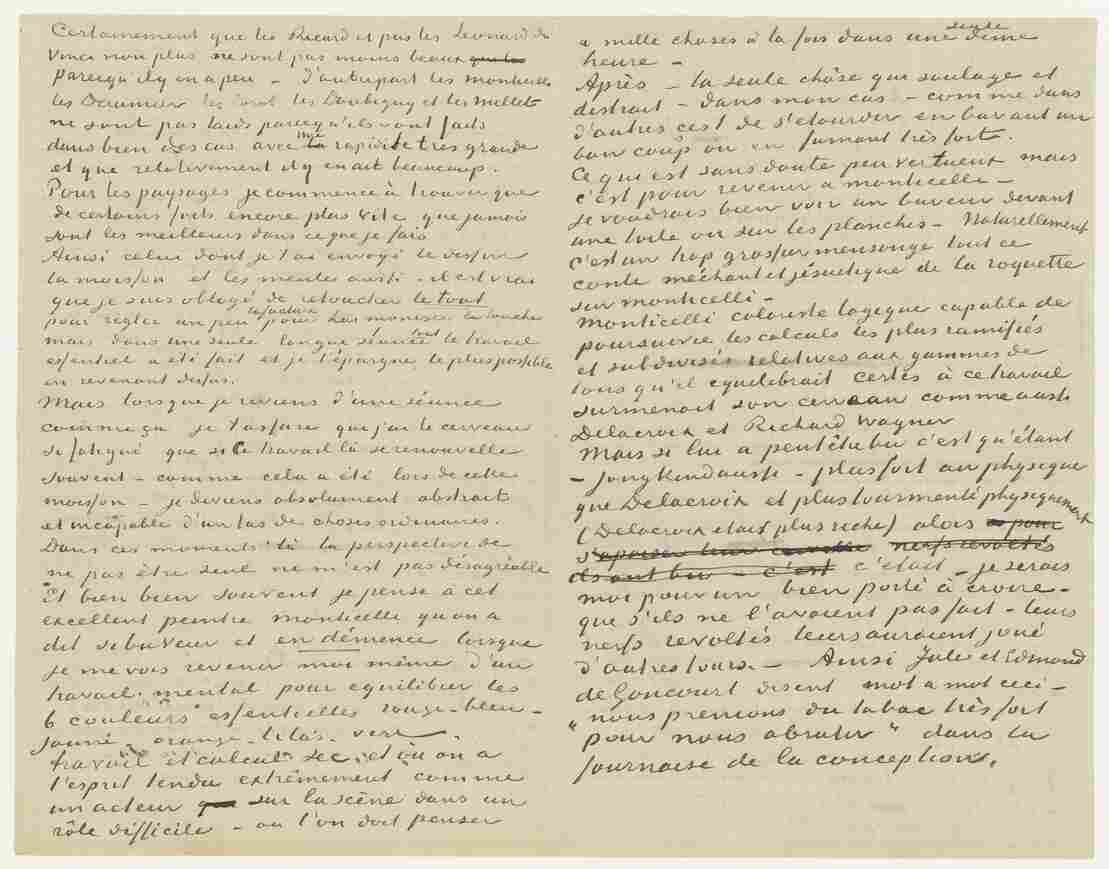 Certainement que les Ricard et pas les Leonard de
Vinci non plus ne sont pas moins beaux que les
parcequ'il y en a peu – D'autrepart les monticelli
les Daumier les Corot les Daubigny et les Millet
ne sont pas laids parcequ'ils ont faits
dans bien des cas avec une rapidité très grande
et que relativement il y en ait beaucoup.
Pour les paysages je commence à trouver que
de certains faits encore plus vite que jamais
sont les meilleurs dans ce que je fais
Ainsi celui dont je t'ai envoyé le dessin
la moisson et les meules aussi – il est vrai
que je suis obligé de retoucher le tout
pour régler un peu la facture pour la touche
mais dans une seule longue séance tout le travail
essentiel a été fait et je l'épargne le plus possible
en revenant dessus.
Mais lorsque je reviens d'une séance
comme ça je t'assure que j'ai le cerveau
si fatigué que si ce travail là se renouvelle
souvent – comme cela a été lors de cette
moisson – je deviens absolument abstrait
et incapable d'un tas de choses ordinaires.
Dans ces moments là la perspective de
ne pas être seul ne m'est pas désagréable
Et bien bien souvent je pense à cet
excellent peintre monticelli qu'on a
dit si buveur et en démence lorsque
je me vois revenir moi même d'un
travail mental pour equilibrer les
6 couleurs essentielles rouge – bleu –
jaune orange – lilas – vert.
travail et calcul sec et où on a
l'esprit tendu extrêmement comme
un acteur que sur la scène dans un
rôle difficile – ou l'on doit penser
a mille choses à la fois dans une seule demie
heure –
Après – la seule chôse qui soulage et
distrait – dans mon cas – comme dans
d'autres c'est de s'etourdir en buvant un
bon coup ou en fumant très fort.
Ce qui est sans doute peu vertueux mais
c'est pour revenir a monticelli –
je voudrais bien voir un buveur devant
une toile ou sur les planches – Naturellement
c'est un trop grossier mensonge tout ce
conte méchant et jésuitique de la roquette
sur monticelli –
Monticelli coloriste logique capable de
poursuivre les calculs les plus ramifiés
et subdivisés relatives aux gammes de
tons qu'il equilibrait certes à ce travail
surmenait son cerveau comme aussi
Delacroix et Richard Wagner
Mais si lui a peutêtre bu c'est qu'étant
– Jongkind aussi – plus fort au physique
que Delacroix et plus tourmenté physiquement
(Delacroix etait plus riche) alors pour
s'apaiser leur cervelle nerfs revoltés
ils ont bu – c'est c'etait – je serais
moi pour un bien porté à croire –
que s'ils ne l'avaient pas fait – leurs
nerfs revoltés leurs auraient joué
d'autres tours. – Ainsi Jule et Edmond
de Goncourt disent mot a mot ceci –
"nous prenions du tabac très fort
"pour nous abrutir" dans la
fournaise de la conception.